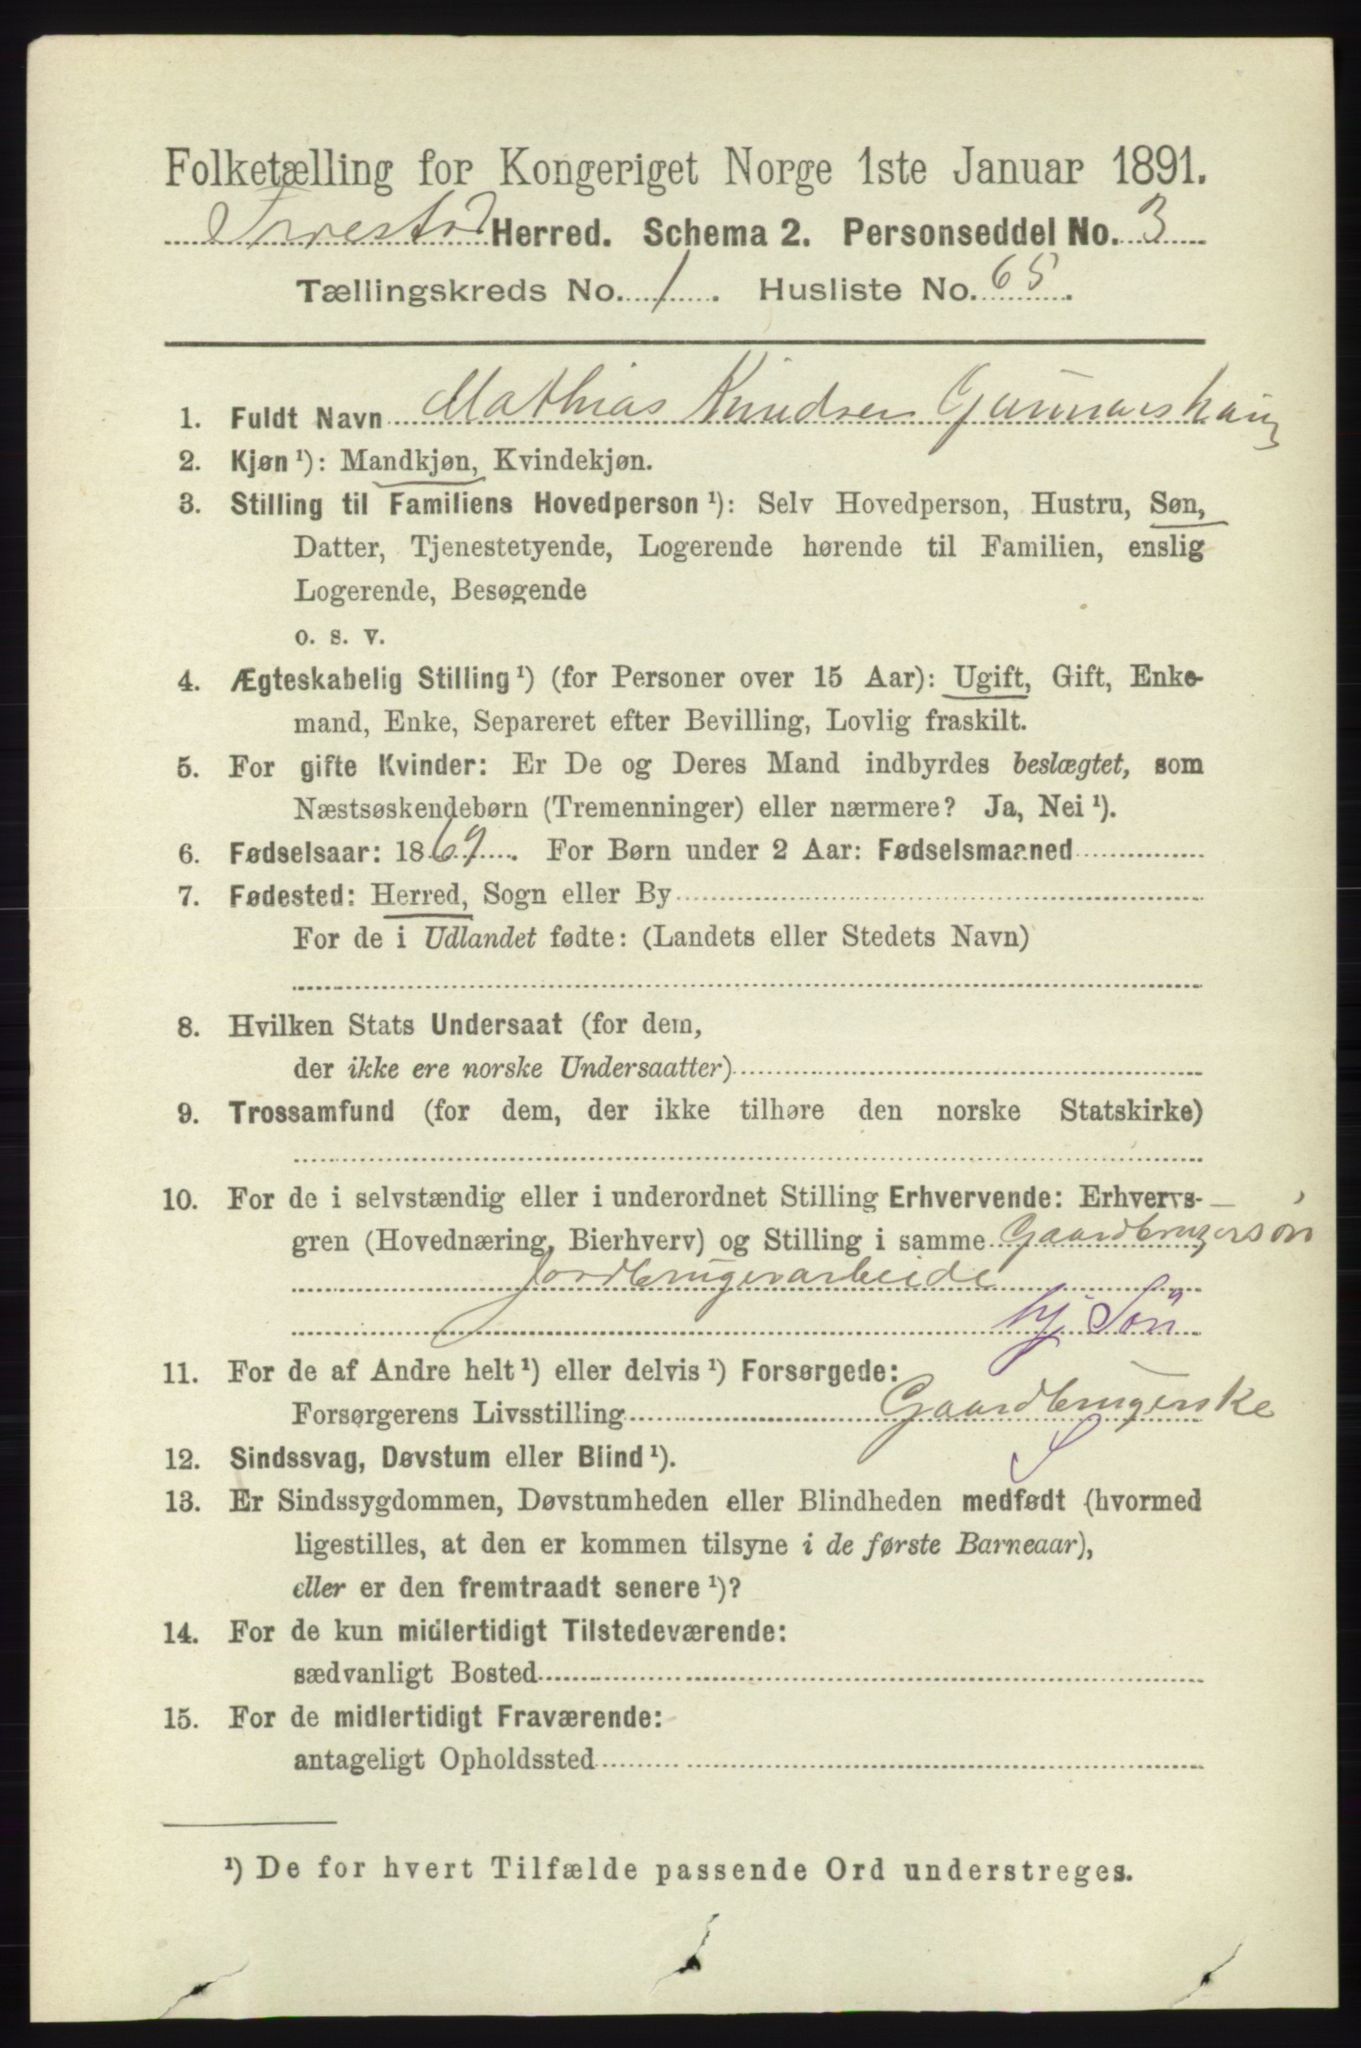 Folketælling for Kongeriget Norge 1ste Januar 1891.
Herred. Schema 2. Personseddel No. 3
Tællingskreds No. 1. Husliste No. 65.
1. Fuldt Navn Mathias Knudsen
2. Kjøn ¹): Mandkjøn, Kvindekjøn.
3. Stilling til Familiens Hovedperson ¹): Selv Hovedperson, Hustru, Søn,
Datter, Tjenestetyende, Logerende hørende til Familien, enslig
Logerende, Besøgende
o. s. v.
4. Ægteskabelig Stilling ¹) (for Personer over 15 Aar): Ugift, Gift, Enke-
mand, Enke, Separeret efter Bevilling, Lovlig fraskilt.
5. For gifte Kvinder: Er De og Deres Mand indbyrdes beslægtet, som
Næstsøskendebørn (Tremenninger) eller nærmere? Ja, Nei ¹).
6. Fødselsaar: 1869. For Børn under 2 Aar: Fødselsmaaned
7. Fødested: Herred, Sogn eller By
For de i Udlandet fødte: (Landets eller Stedets Navn)
8. Hvilken Stats Undersaat (for dem,
der ikke ere norske Undersaatter)
9. Trossamfund (for dem, der ikke tilhøre den norske Statskirke)
10. For de i selvstændig eller i underordnet Stilling Erhvervende: Erhvervs-
gren (Hovednæring, Bierhverv) og Stilling i samme Gaardbrugersøn
Jordbrugerarbeide
hj. Søn
11. For de af Andre helt ¹) eller delvis ¹) Forsørgede:
Forsørgerens Livsstilling Gaardbrugerske
S
12. Sindssvag, Døvstum eller Blind ¹).
13. Er Sindssygdommen, Døvstumheden eller Blindheden medfødt (hvormed
ligestilles, at den er kommen tilsyne i de første Barneaar),
eller er den fremtraadt senere ¹)?
14. For de kun midlertidigt Tilstedeværende:
sædvanligt Bosted
15. For de midlertidigt Fraværende:
antageligt Opholdssted
¹) De for hvert Tilfælde passende Ord understreges.